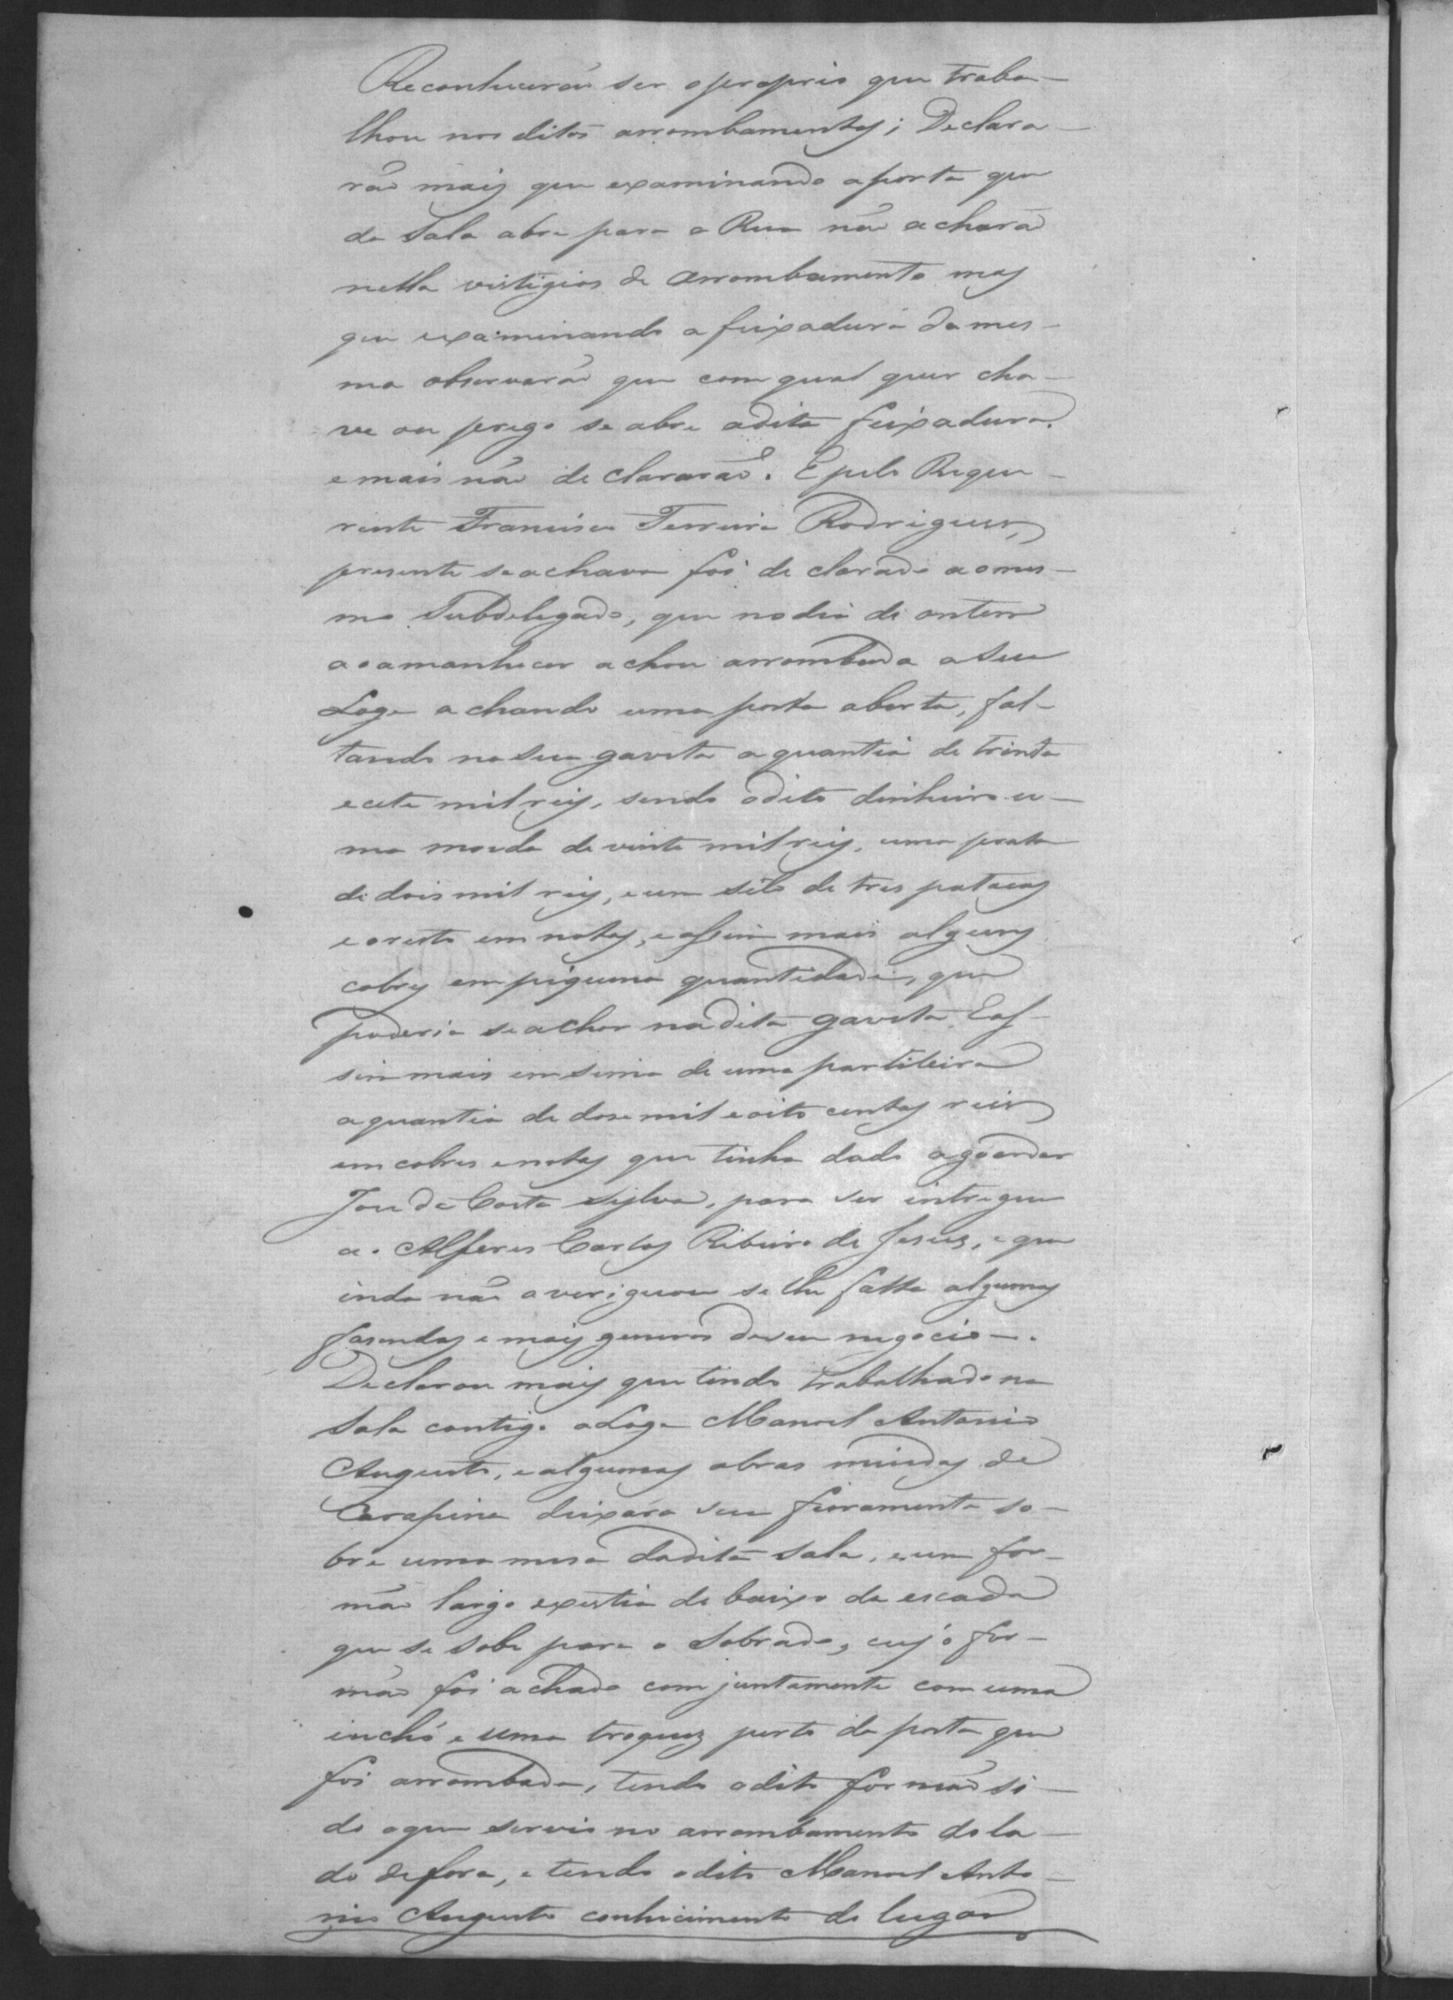 Reconhecerão ser o proprio que traba-
lhou nos ditos arrombamentos; Declara-
rão mais que examinando a porta que
da Sala abre para a Rua não acharão
nella vistigios de arrombamento mas
que examinando a feixadura da mes-
ma observarão que com qual quer cha-
ve ou prego se abre a dita feixadura,
e mais não de clararão. E pelo Reque-
rente Francisco Ferreira Rodrigues,
presente se achava foi de clarado ao mes-
mo Subdelegado, que no dia de ontem
ao amanhecer achou arrombada a sua
Loge achando uma porta aberta, fal-
tando na sua gaveta a quantia de trinta
e cete mil reis, sendo o dito dinheiro u-
ma moeda de vinte mil reis, uma prata
de dois mil reis, e um sello de tres patacas
e o resto em notas, e assim mais alguns
cobres em piquena quantidade, que
poderia se achar na dita gaveta. E as-
sim mais em sima de uma partileira
a quantia de dose mil e oito centos reis
em cobres e notas que tinha dado a goardar
José da Costa Sylva, para ser intregue
ao Alferes Carlos Ribeiro de Jesus, e que
inda não averiguou se lhe falta algumas
fasendas e mais generos de seu negocio.
Declarou mais que tendo trabalhado na
Sala contigo a Loge Manoel Antonio
Augusto, e algumas obras miudas de
Carapina deixara sua firramenta so-
bre uma mesa da dita sala, e um for-
mão largo existia de baixo da escada
que se sobe para o Sobrado, cujo for-
mão foi achado com juntamente com uma
inchó e uma troques perto da porta que
foi arrombada, tendo o dito formão si-
do o que servio no arrombamento do la-
do de fora, e tendo o dito Manoel Anto-
nio Augusto conhicimento do lugar